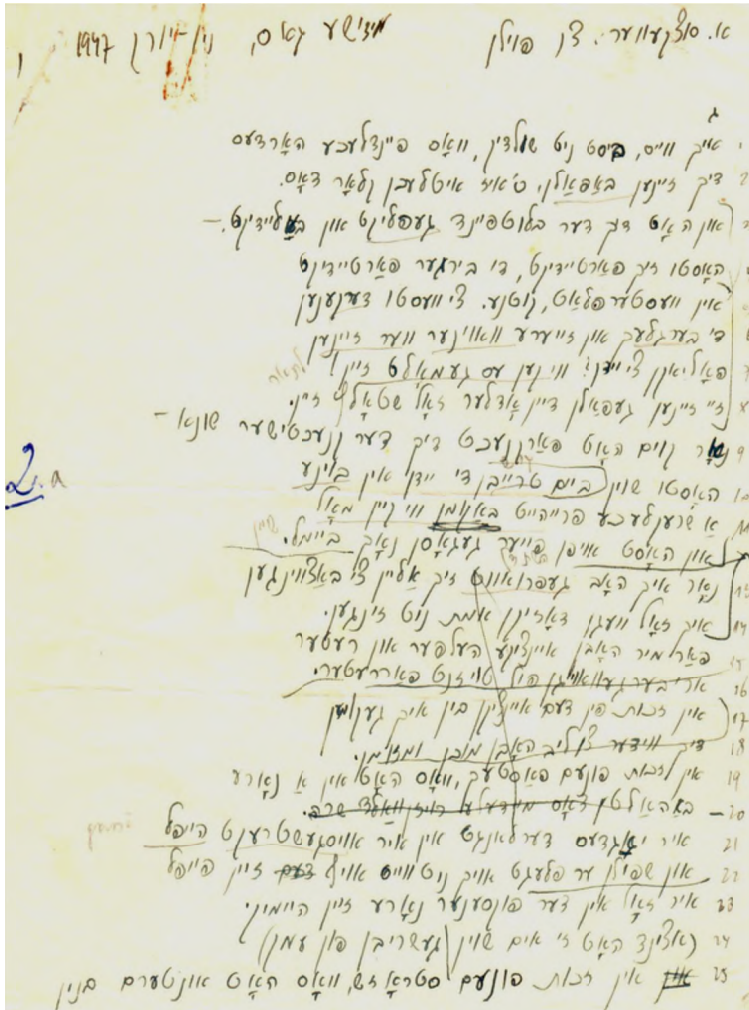 א. סוצקעווער: צו פוילן ייִדישע גאַס, ניו-יאָרק 1947
ג
איך ווייס, ביסט ניט שולדיק, וואָס פיינדלעכע האָרדעס
דיך זיינען באַפאַלן. ס'איז איטלעכן קלאָר דאָס.
און האָט דיך דער בלוטפיינד געפליקט און באַליידיקט. —
האָסטו זיך פאַרטיידיקט, די בירגער פאַרטיידיקט
אין וועסטערפּלאַט, קוטנע. צי וועסטו דערקענען
די בערגלעך און זייערע וואוינער ווער זיינען
פּאָליאַקן צי יידן? ווי קען עס געמאָלט זיין!
זיי זיינען געפאַלן דיין אָדלער זאָל שטאָלץ זיין.
נאָר קוים האָט פאַרקנעכט דיך דער קנעכטישער שונא —
האָסטו שוין ביים טרייבן די יידן אין בוינע
אַ שרעקלעכע פרייהייט באַקומען ווי קיין מאָל
און האָסט אויפן פייער געגאָסן נאָך ביימל.
נאָר איך האָב געפּרואווט זיך אַליין צו באַצווינגען
איך זאָל וועגן דאָזיקן אמת ניט זינגען.
פאַר מיר האָבן איינציקע העלפער און רעטער
אריבערגעוואויגן פיל טויזנט פאַררעטער.
אין זכות פון דעם איינציקן בין איך געקומען
דיך ווידער צוליב האָבן מוכן ומזומן.
אין זכות פונעם פּאַסטעך, וואָס האָט אין אַ נאָרע
באַהאַלטן דאָס מיידעלע רויזנוואַלד שרה.
איר יאַגדעס דערלאַנגט אין איר אויסגעשטרעקט הייפל
און שפּילן ער פלעגט אויך ניט ווייט אויף דעם זיין פייפל
איר זאָל אין דער פינסטערער נאָרע זיין היימיק.
(אַצינד האָט זי אים שוין געשריבן פון עמק)
אין זכות פונעם סטראָזש, וואָס האָט אונטערם בנין
2.a